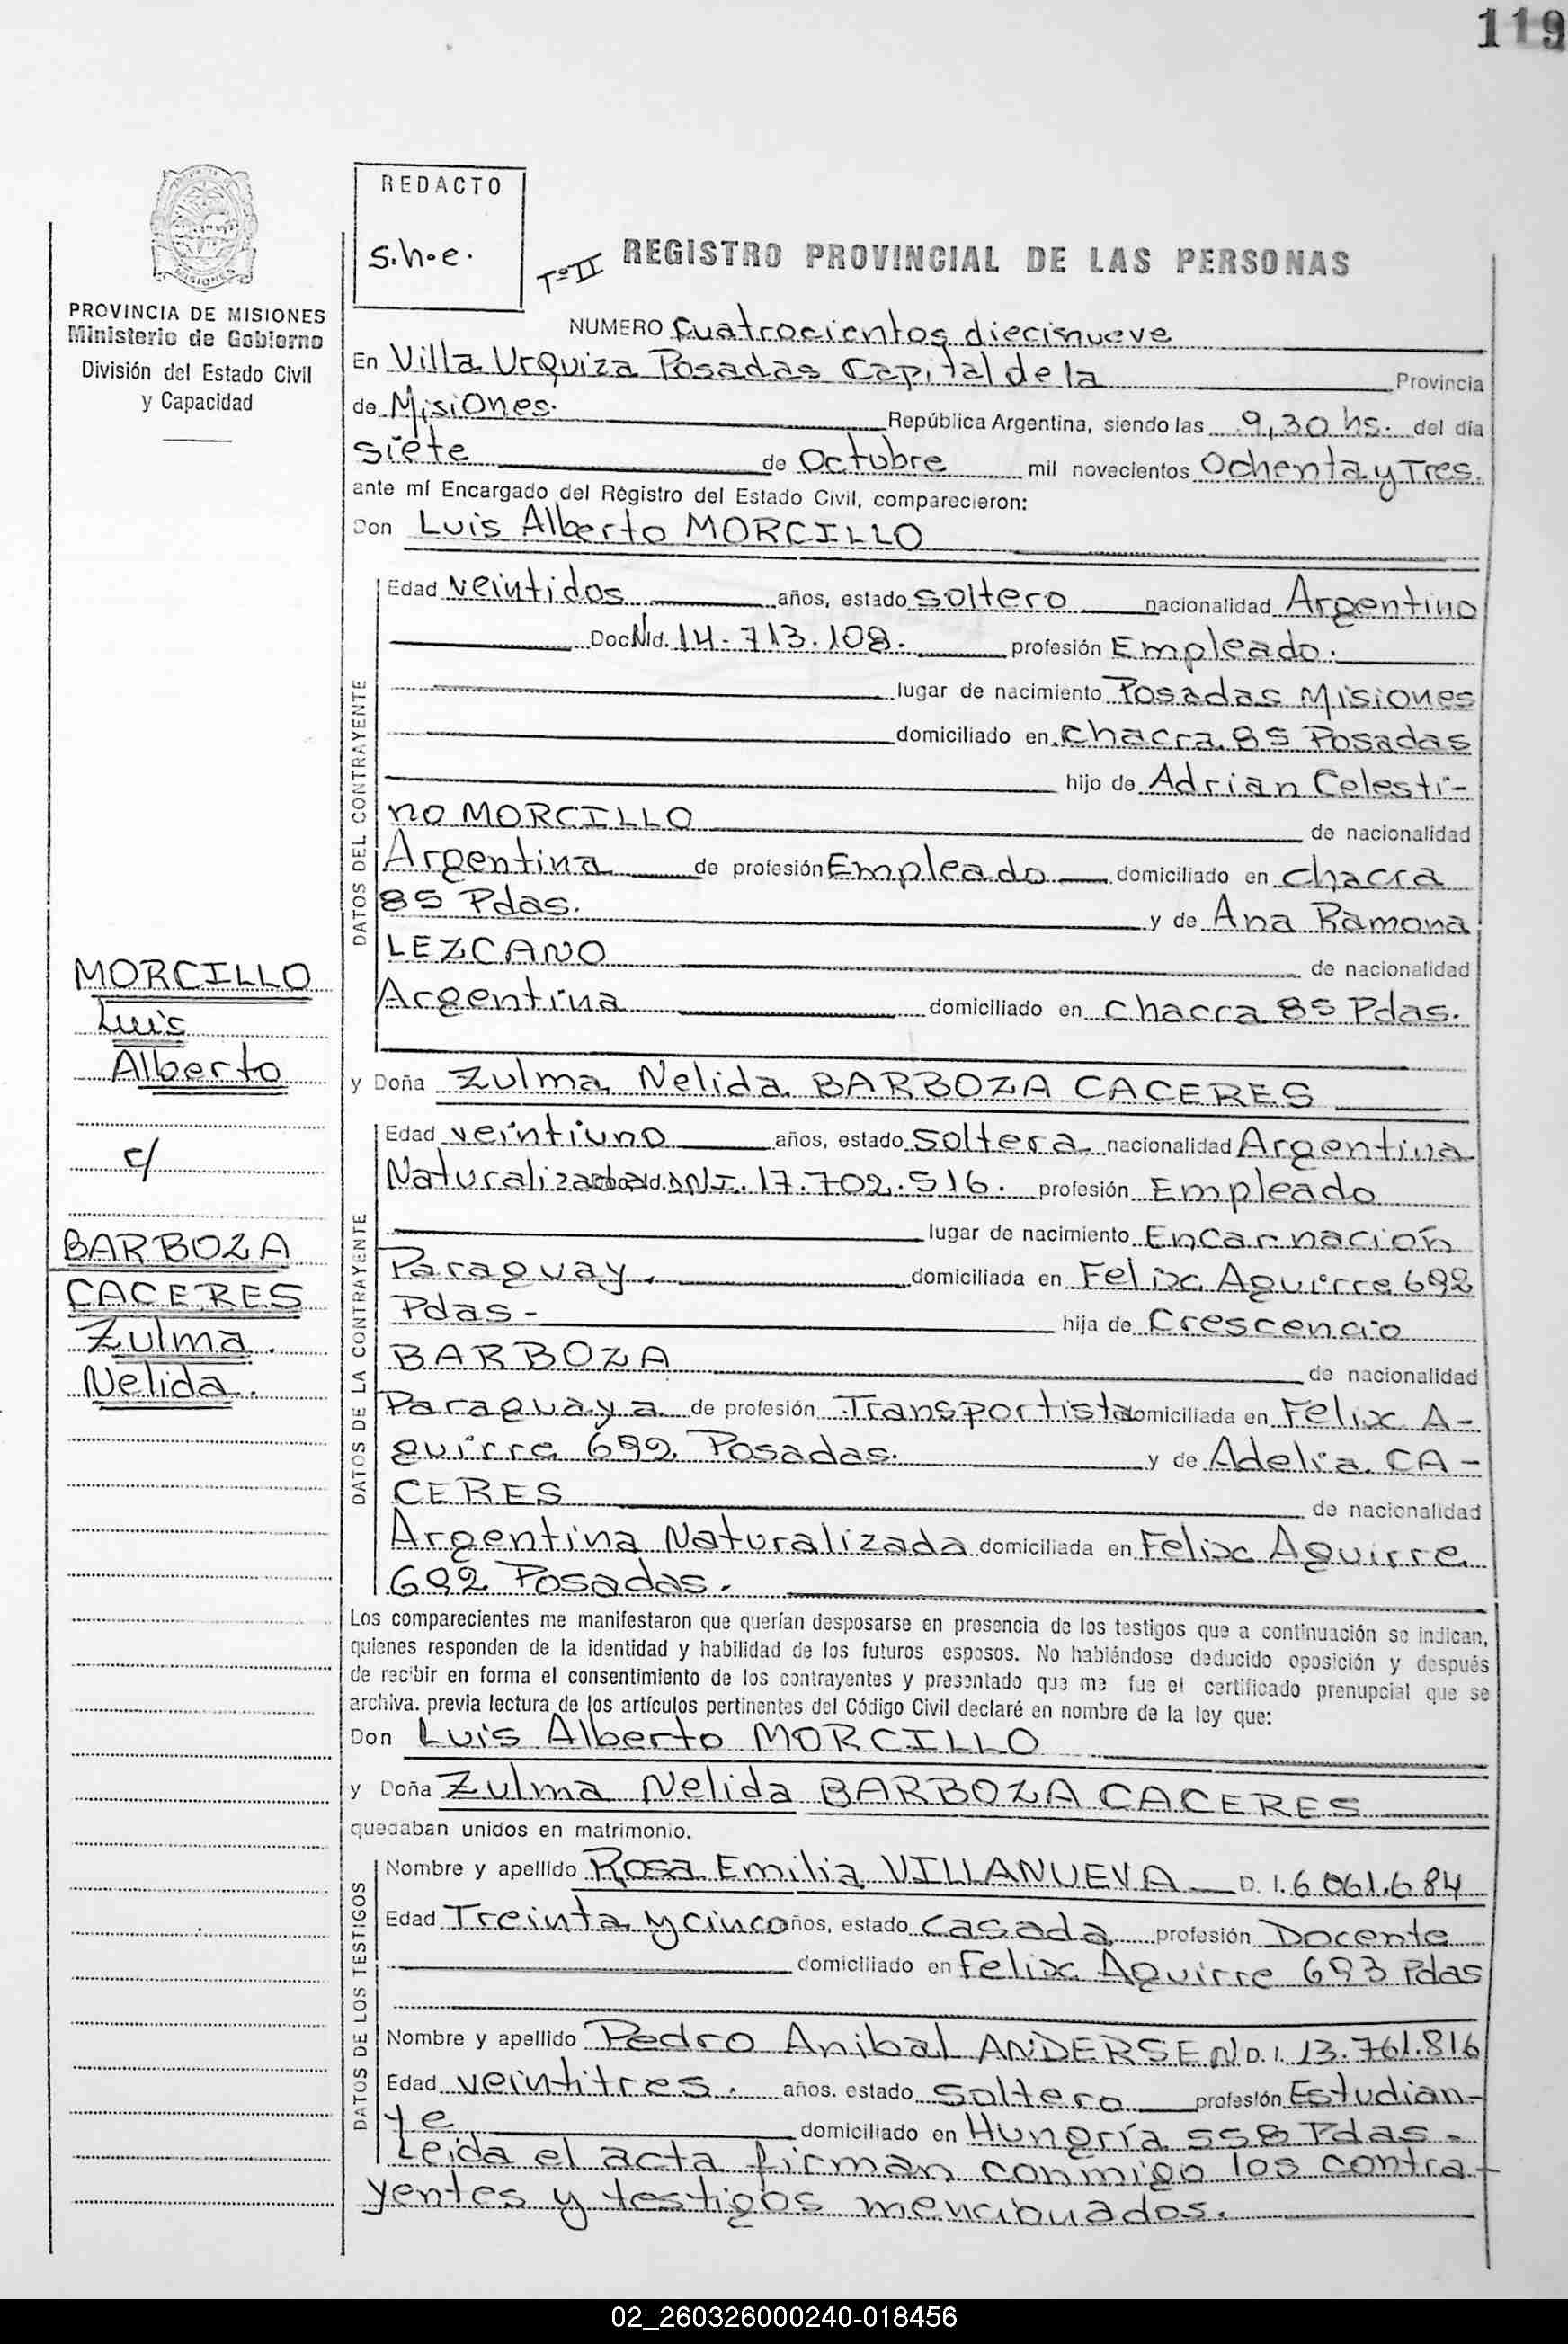 119
REDACTO
s.h.e.
Tº II
REGISTRO PROVINCIAL DE LAS PERSONAS
PROVINCIA DE MISIONES
Ministerio de Gobierno
División del Estado Civil
y Capacidad
NUMERO Cuatrocientos diecinueve
En Villa Urquiza Posadas Capital de la Provincia
de Misiones. República Argentina, siendo las 9,30 hs. del día
siete de Octubre mil novecientos Ochenta y Tres.
ante mí Encargado del Registro del Estado Civil, comparecieron:
Don Luis Alberto MORCILLO
DATOS DEL CONTRAYENTE
Edad veintidos años, estado soltero nacionalidad Argentino
Doc. Nid. 14.713.108. profesión Empleado.
lugar de nacimiento Posadas Misiones
domiciliado en chacra 85 Posadas
hijo de Adrian Celesti-
no MORCILLO de nacionalidad
Argentina de profesión Empleado domiciliado en chacra
85 Pdas. y de Ana Ramona
LEZCANO de nacionalidad
Argentina domiciliado en chacra 85 Pdas.
MORCILLO
Luis
Alberto
c/
BARBOZA
CACERES
Zulma
Nelida.
y Doña Zulma Nelida BARBOZA CACERES
DATOS DE LA CONTRAYENTE
Edad veintiuno años, estado soltera nacionalidad Argentina
Naturalizada D.N.I. 17.702.516. profesión Empleado
lugar de nacimiento Encarnación
Paraguay. domiciliada en Felix Aguirre 692
Pdas- hija de Crescencio
BARBOZA de nacionalidad
Paraguaya de profesión Transportista domiciliada en Felix A-
guirre 692 Posadas. y de Adelia CA-
CERES de nacionalidad
Argentina Naturalizada domiciliada en Felix Aguirre
692 Posadas.
Los comparecientes me manifestaron que querían desposarse en presencia de los testigos que a continuación se indican,
quienes responden de la identidad y habilidad de los futuros esposos. No habiéndose deducido oposición y después
de recibir en forma el consentimiento de los contrayentes y presentado que me fue el certificado prenupcial que se
archiva. previa lectura de los artículos pertinentes del Código Civil declaré en nombre de la ley que:
Don Luis Alberto MORCILLO
y Doña Zulma Nelida BARBOZA CACERES
quedaban unidos en matrimonio.
DATOS DE LOS TESTIGOS
Nombre y apellido Rosa Emilia VILLANUEVA D. I. 6.061.684
Edad Treinta y cinco años, estado casada profesión Docente
domiciliado en Felix Aguirre 693 Pdas
Nombre y apellido Pedro Anibal ANDERSEN D. I. 13.761.816
Edad veintitres. años. estado soltero profesión Estudian-
te domiciliado en Hungría 558 Pdas.
Leida el acta firman conmigo los contra-
yentes y testigos mencionados.
02_260326000240-018456